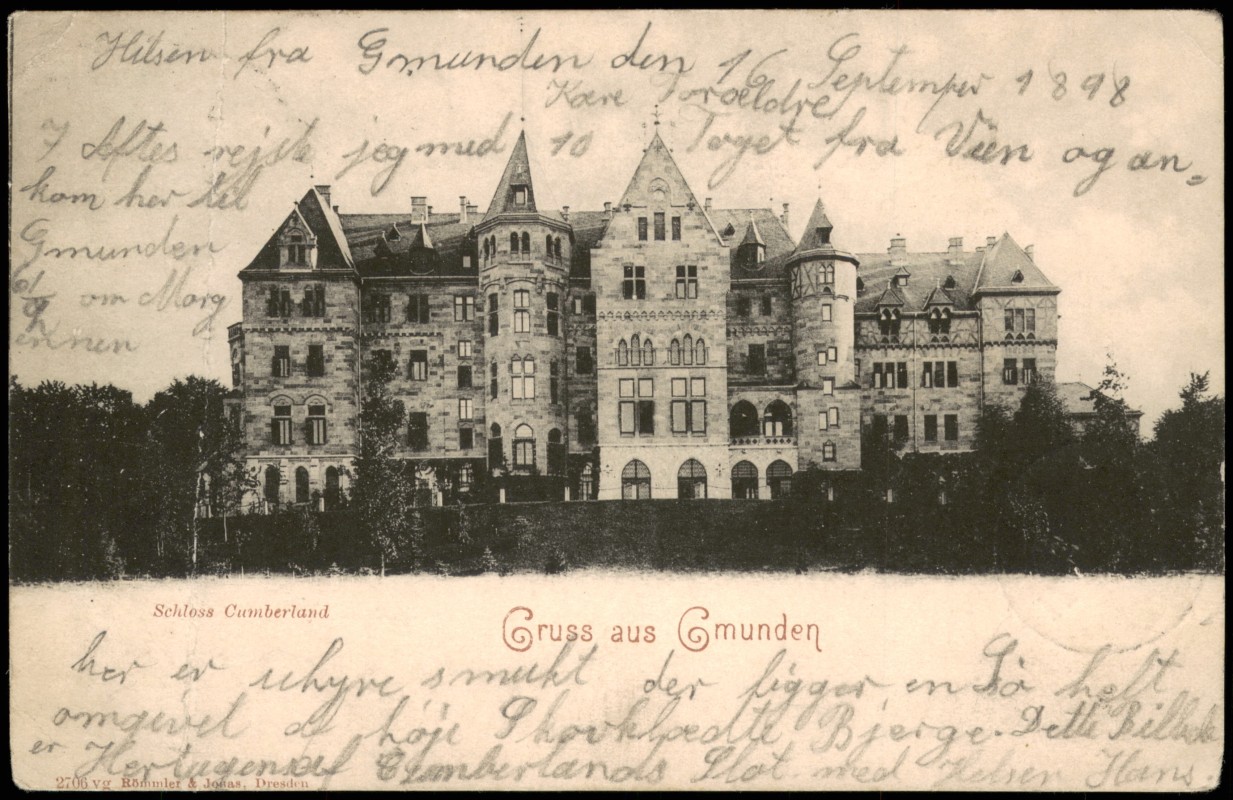 Hilsen fra Gmunden den 16 September 1898
Kære Forældre
I Aftes rejste jeg med 10 Toget fra Vien og an=
kom her til
Gmunden
om Morg
ennen
Schloss Cumberland
Gruss aus Gmunden
her er uhyre smukt der ligger en Sø helt
omgivet af høje Skovklædte Bjerge. Dette Billede
er Hertugen af Cumberlands Slot med Hilsen Hans.
2706 vg Römmler & Jonas, Dresden